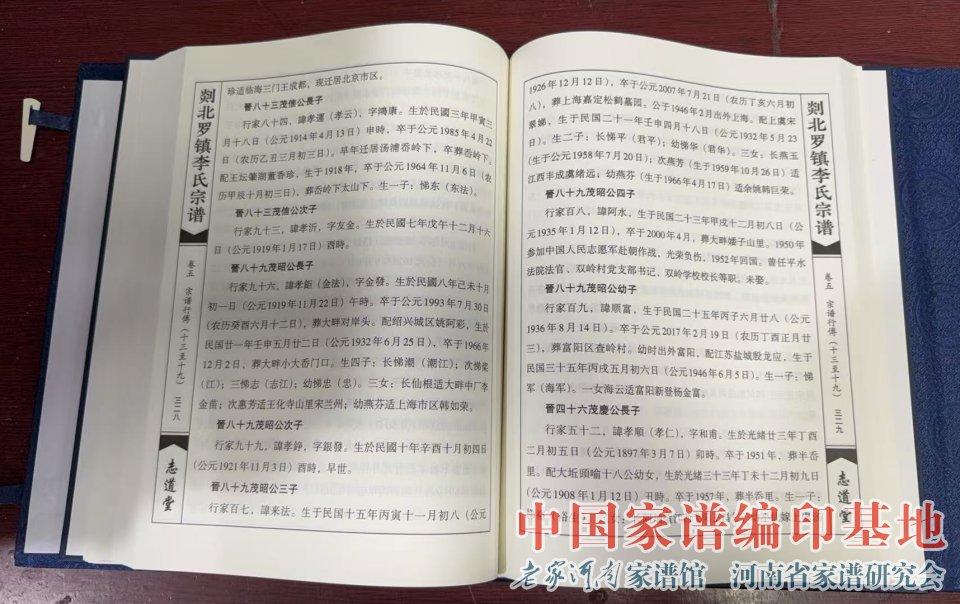 剡北罗镇李氏宗谱
卷五 宗谱行傳（十三至十九）
三二八
志道堂
珍适临海三门王成都，现迁居北京市区。
晉八十三茂信公長子
行家八十四，諱孝運（孝云），字鴻康。生於民國三年甲寅三
月十八日（公元1914年4月13日）申時，卒于公元1985年4月22
日（农历乙丑三月初三日）。早年迁居汤浦岙岭下，卒葬岙岭下。
配王坛肇湖董香珍，生于1918年，卒于公元1964年11月6日（农
历甲辰十月初三日），葬岙岭下太山下。生一子：悌东（东法）。
晉八十三茂信公次子
行家九十三，諱孝沂，字友金。生於民國七年戊午十二月十六
日（公元1919年1月17日）酉時。
晉八十九茂昭公長子
行家九十六，諱孝鉅（金法），字金發。生於民國八年己未十月
初一日（公元1919年11月22日）午時。卒于公元1993年7月30日
（农历癸酉六月十二日），葬大畔对岸头。配绍兴城区姚阿彩，生於
民国廿一年壬申五月廿二日（公元1932年6月25日），卒于1966年
12月2日，葬大畔小大岙门口。生四子：长悌潮（潮江）；次悌梁
（江）；三悌志（志江）；幼悌忠（忠）。三女：长仙根适大畔中厂李
金苗；次惠芳适王化寺山里宋兰州；幼燕芬适上海市区韩如荣。
晉八十九茂昭公次子
行家九十九，諱孝錚，字銀發。生於民國十年辛酉十月初四日
（公元1921年11月3日）酉時，早世。
晉八十九茂昭公三子
行家百七，諱来法。生于民国十五年丙寅十一月初八（公元
1926年12月12日），卒于公元2007年7月21日（农历丁亥六月初
八），葬上海嘉定松鹤墓园。公于1946年2月出外上海。配上虞宋
景娣，生于民国二十一年壬申四月十八日（公元1932年5月23
日）。生二子：长悌平（君平）；幼悌华（君华）。三女：长燕玉
（生于公元1958年7月20日）；次燕芳（生于1959年10月26日）适
江西丰成虞绪远；幼燕芬（生于1966年4月17日）适余姚韩巨荣。
晉八十九茂昭公四子
行家百八，諱阿水，生于民国二十三年甲戌十二月初八日（公
元1935年1月12日），卒于2000年4月，葬大畔矮子山里。1950年
参加中国人民志愿军赴朝作战，光荣负伤，1952年回国。曾任平水
法院法官、双岭村党支部书记、双岭学校校长等职。未娶。
晉八十九茂昭公幼子
行家百九，諱順富，生于民国二十五年丙子六月廿八（公元
1936年8月14日）。卒于公元2017年2月19日（农历丁酉正月廿
三），葬富阳区查岭村。幼时出外富阳，配江苏盐城殷龙应，生于
民国三十五年丙戌五月初六日（公元1946年6月5日）。生一子：悌
军（海军）。一女海云适富阳新登杨金富。
晉四十六茂慶公長子
行家五十二，諱孝順（孝仁），字和甫。生於光緒廿三年丁酉
二月初五日（公元1897年3月7日）卯時。卒于1951年，葬半岙
里。配大坵頭喻十八公幼女，生於光緒三十三年丁未十二月初九日
（公元1908年1月12日）丑時。卒于1957年，葬半岙里。生一子：
剡北罗镇李氏宗谱
卷五 宗谱行傳（十三至十九）
三二九
志道堂
中国家谱编印基地
老家河南家谱馆 河南省家谱研究会